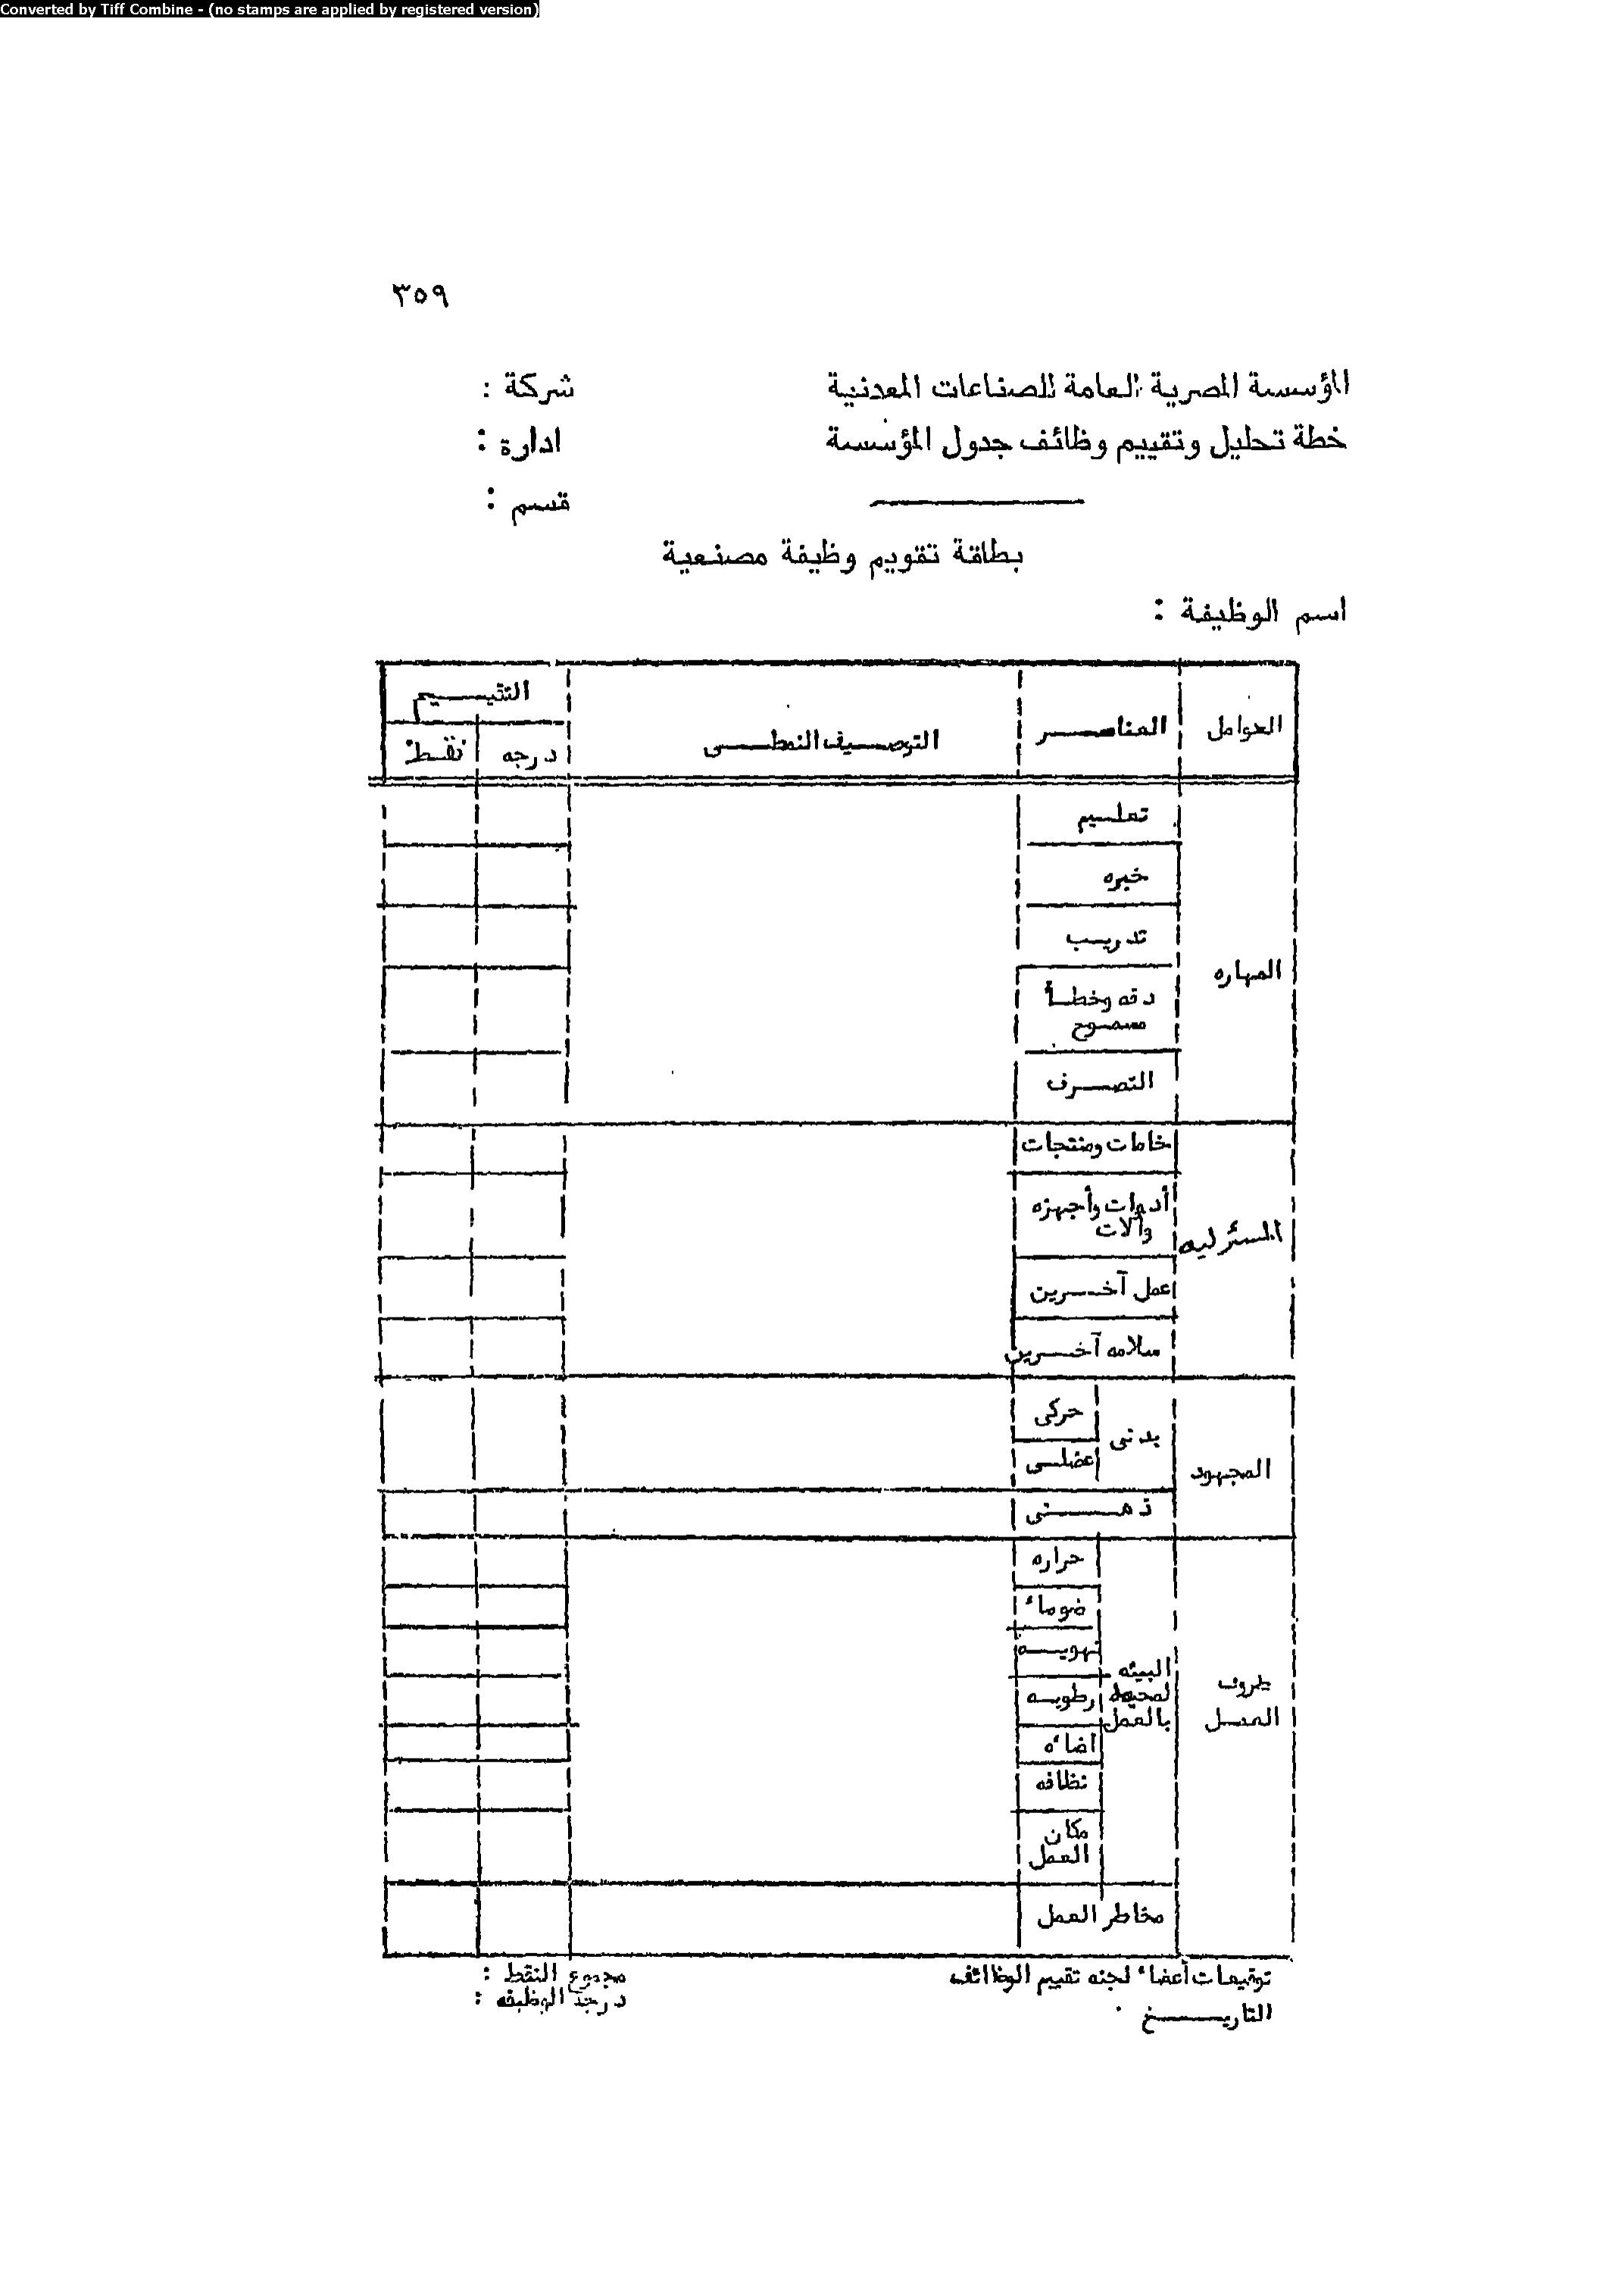 Converted by Tiff Combine - (no stamps are applied by registered version)
٣٥٩
المؤسسة المصرية العامة للصناعات المعدنية
شركة :
خطة تحليل وتقييم وظائف جدول المؤسسة
ادارة :
قسم :
بطاقة تقويم وظيفة مصنعية
اسم الوظيفة :
العوامل
العناصر
التوصيف النمطى
التقييم
درجه
نقط
المهاره
تعليم
خبره
تدريب
دقه وخطأ
مسموح
التصرف
المسئوليه
خامات ومنتجات
أدوات وأجهزه
وآلات
عمل آخرين
سلامه آخرين
المجهود
بدنى
حركى
عضلى
ذهنى
ظروف
العمل
البيئه
المحيطه
بالعمل
حراره
ضوضاء
تهويه
رطوبه
اضاءه
نظافه
مكان
العمل
مخاطر العمل
توقيعات أعضاء لجنه تقييم الوظائف
مجموع النقط :
درجة الوظيفه :
التاريخ